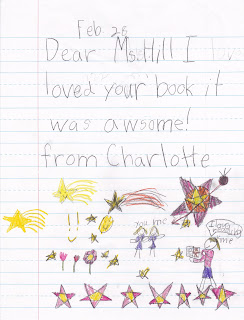 Feb 28
Dear Ms. Hill I
loved your book it
was awsome!
from Charlotte
!!
you me
I love
me